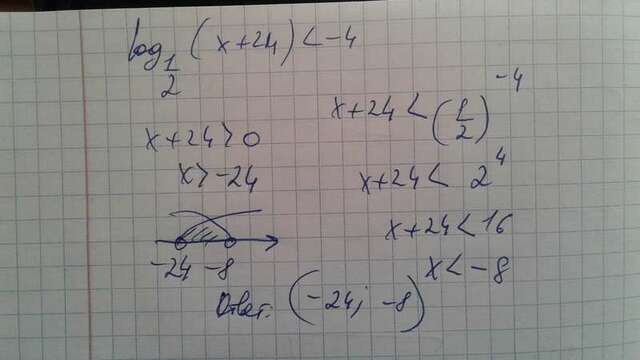 log_{1/2} (x+24) < -4
x+24 > 0
x > -24
-24 -8
x+24 < (1/2)^{-4}
x+24 < 2^4
x+24 < 16
x < -8
Ответ: (-24; -8)